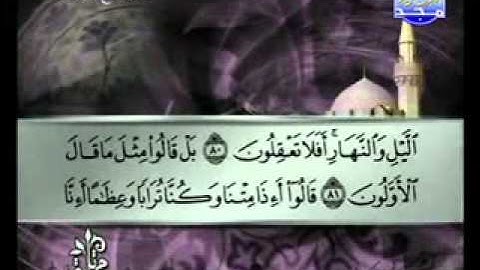 الَّيْلِ وَالنَّهَارِ ۚ أَفَلَا تَعْقِلُونَ ٨٠ بَلْ قَالُوا۟ مِثْلَ مَا قَالَ
الْأَوَّلُونَ ٨١ قَالُوٓا۟ أَءِذَا مِتْنَا وَكُنَّا تُرَابًا وَعِظَٰمًا أَءِنَّا